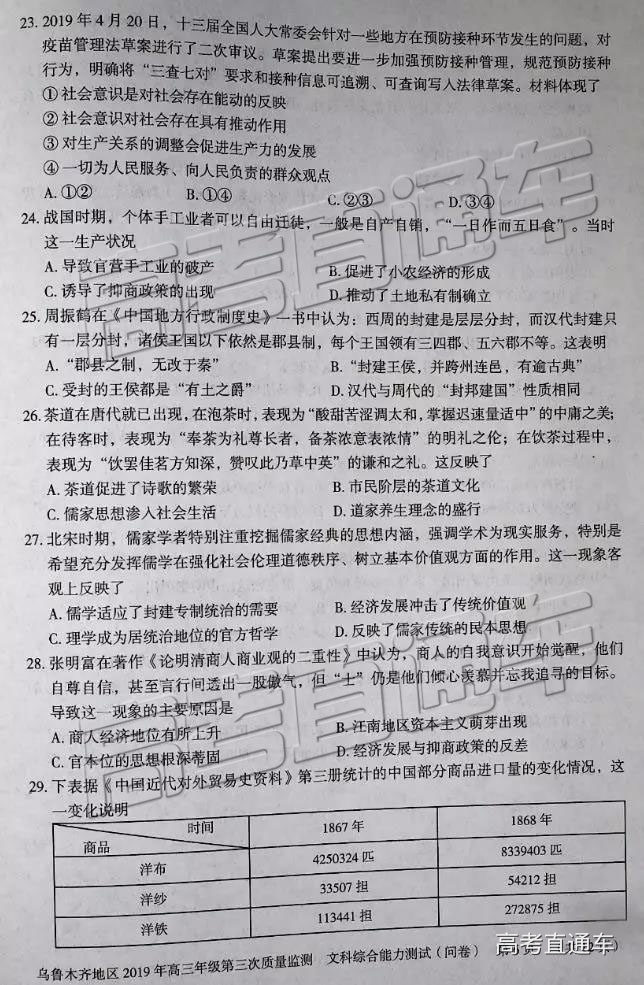 23. 2019 年 4 月 20 日，十三届全国人大常委会针对一些地方在预防接种环节发生的问题，对
疫苗管理法草案进行了二次审议。草案提出要进一步加强预防接种管理，规范预防接种
行为，明确将“三查七对”要求和接种信息可追溯、可查询写入法律草案。材料体现了
① 社会意识是对社会存在能动的反映
② 社会意识对社会存在具有推动作用
③ 对生产关系的调整会促进生产力的发展
④ 一切为人民服务、向人民负责的群众观点
A. ①② B. ①④ C. ②③ D. ③④
24. 战国时期，个体手工业者可以自由迁徙，一般是自产自销，“一日作而五日食”。当时
这一生产状况
A. 导致官营手工业的破产 B. 促进了小农经济的形成
C. 诱导了抑商政策的出现 D. 推动了土地私有制确立
25. 周振鹤在《中国地方行政制度史》一书中认为：西周的封建是层层分封，而汉代封建只
有一层分封，诸侯王国以下依然是郡县制，每个王国领有三四郡、五六郡不等。这表明
A. “郡县之制，无改于秦” B. “封建王侯，并跨州连邑，有逾古典”
C. 受封的王侯都是“有土之爵” D. 汉代与周代的“封邦建国”性质相同
26. 茶道在唐代就已出现，在泡茶时，表现为“酸甜苦涩调太和，掌握迟速量适中”的中庸之美；
在待客时，表现为“奉茶为礼尊长者，备茶浓意表浓情”的明礼之伦；在饮茶过程中，
表现为“饮罢佳茗方知深，赞叹此乃草中英”的谦和之礼。这反映了
A. 茶道促进了诗歌的繁荣 B. 市民阶层的茶道文化
C. 儒家思想渗入社会生活 D. 道家养生理念的盛行
27. 北宋时期，儒家学者特别注重挖掘儒家经典的思想内涵，强调学术为现实服务，特别是
希望充分发挥儒学在强化社会伦理道德秩序、树立基本价值观方面的作用。这一现象客
观上反映了
A. 儒学适应了封建专制统治的需要 B. 经济发展冲击了传统价值观
C. 理学成为居统治地位的官方哲学 D. 反映了儒家传统的民本思想
28. 张明富在著作《论明清商人商业观的二重性》中认为，商人的自我意识开始觉醒，他们
自尊自信，甚至言行间透出一股傲气，但“士”仍是他们倾心羡慕并忘我追寻的目标。
导致这一现象的主要原因是
A. 商人经济地位有所上升 B. 江南地区资本主义萌芽出现
C. 官本位的思想根深蒂固 D. 经济发展与抑商政策的反差
29. 下表据《中国近代对外贸易史资料》第三册统计的中国部分商品进口量的变化情况，这
一变化说明
时间 1867 年 1868 年
商品
洋布 4250324 匹 8339403 匹
洋纱 33507 担 54212 担
洋铁 113441 担 272875 担
乌鲁木齐地区 2019 年高三年级第三次质量监测 文科综合能力测试（问卷）
高考直通车
高考直通车
高考直通车